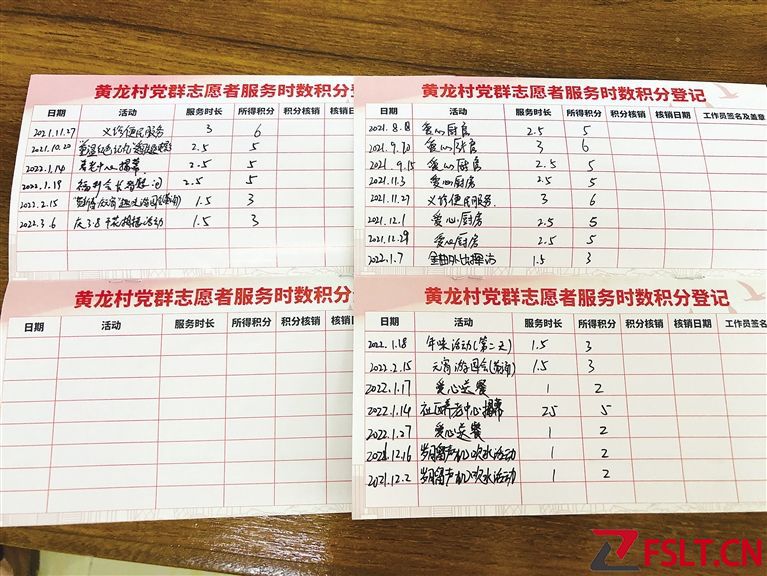 黄龙村党群志愿者服务时数积分登
日期 活动 服务时长 所得积分 积分核销 核销
2021.11.27 义诊便民服务 3 6
2021.10.20 2.5 5
2022.1.14 养老中心揭幕 2.5 5
2022.1.19 2.5 5
2022.2.15 1.5 3
2022.3.6 庆3.8 活动 1.5 3
黄龙村党群志愿者服务时数积分登记
日期 活动 服务时长 所得积分 积分核销 核销日期 工作员签名及盖章
2021.8.8 爱心厨房 2.5 5
2021.9.10 爱心厨房 3 6
2021.9.15 爱心厨房 2.5 5
2021.11.3 爱心厨房 2.5 5
2021.11.27 义诊便民服务 3 6
2021.12.1 爱心厨房 2.5 5
2021.12.29 爱心厨房 2.5 5
2022.1.7 1.5 3
黄龙村党群志愿者服务时数积分
日期 活动 服务时长 所得积分 积分核销 核销
黄龙村党群志愿者服务时数积分登记
日期 活动 服务时长 所得积分 积分核销 核销日期 工作员签
2022.1.18 年味活动(第二天) 1.5 3
2022.2.15 元宵游园会 1.5 3
2022.1.17 爱心送餐 1 2
2022.1.14 社区养老中心揭幕 2.5 5
2022.1.27 爱心送餐 1 2
2021.12.16 岁月留声机吹水活动 1 2
2021.12.2 岁月留声机吹水活动 1 2
FSLT.CN